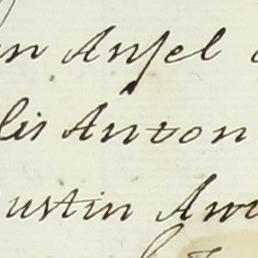 n Ansel
lis Anton
ustin Aw